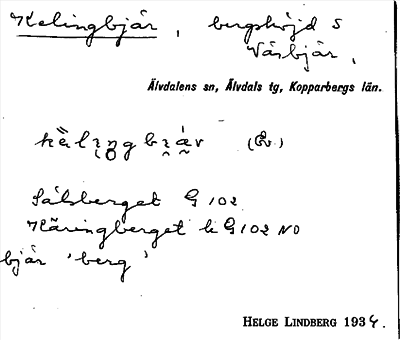 Kelingbjär, bergshöjd S
Väsbjär,
Älvdalens sn, Älvdals tg, Kopparbergs län.
Sälsberget G 102
Käringberget k G 102 NO
bjär 'berg'
HELGE LINDBERG 1934.